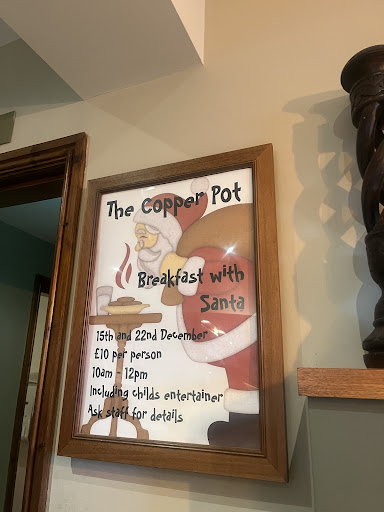 The Copper Pot
Breakfast with
Santa
15th and 22nd December
£10 per person
10am - 12pm
Including childs entertainer
Ask staff for details